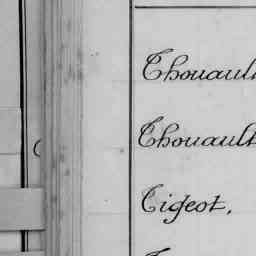 Thouault
Thouault
Tigeot.